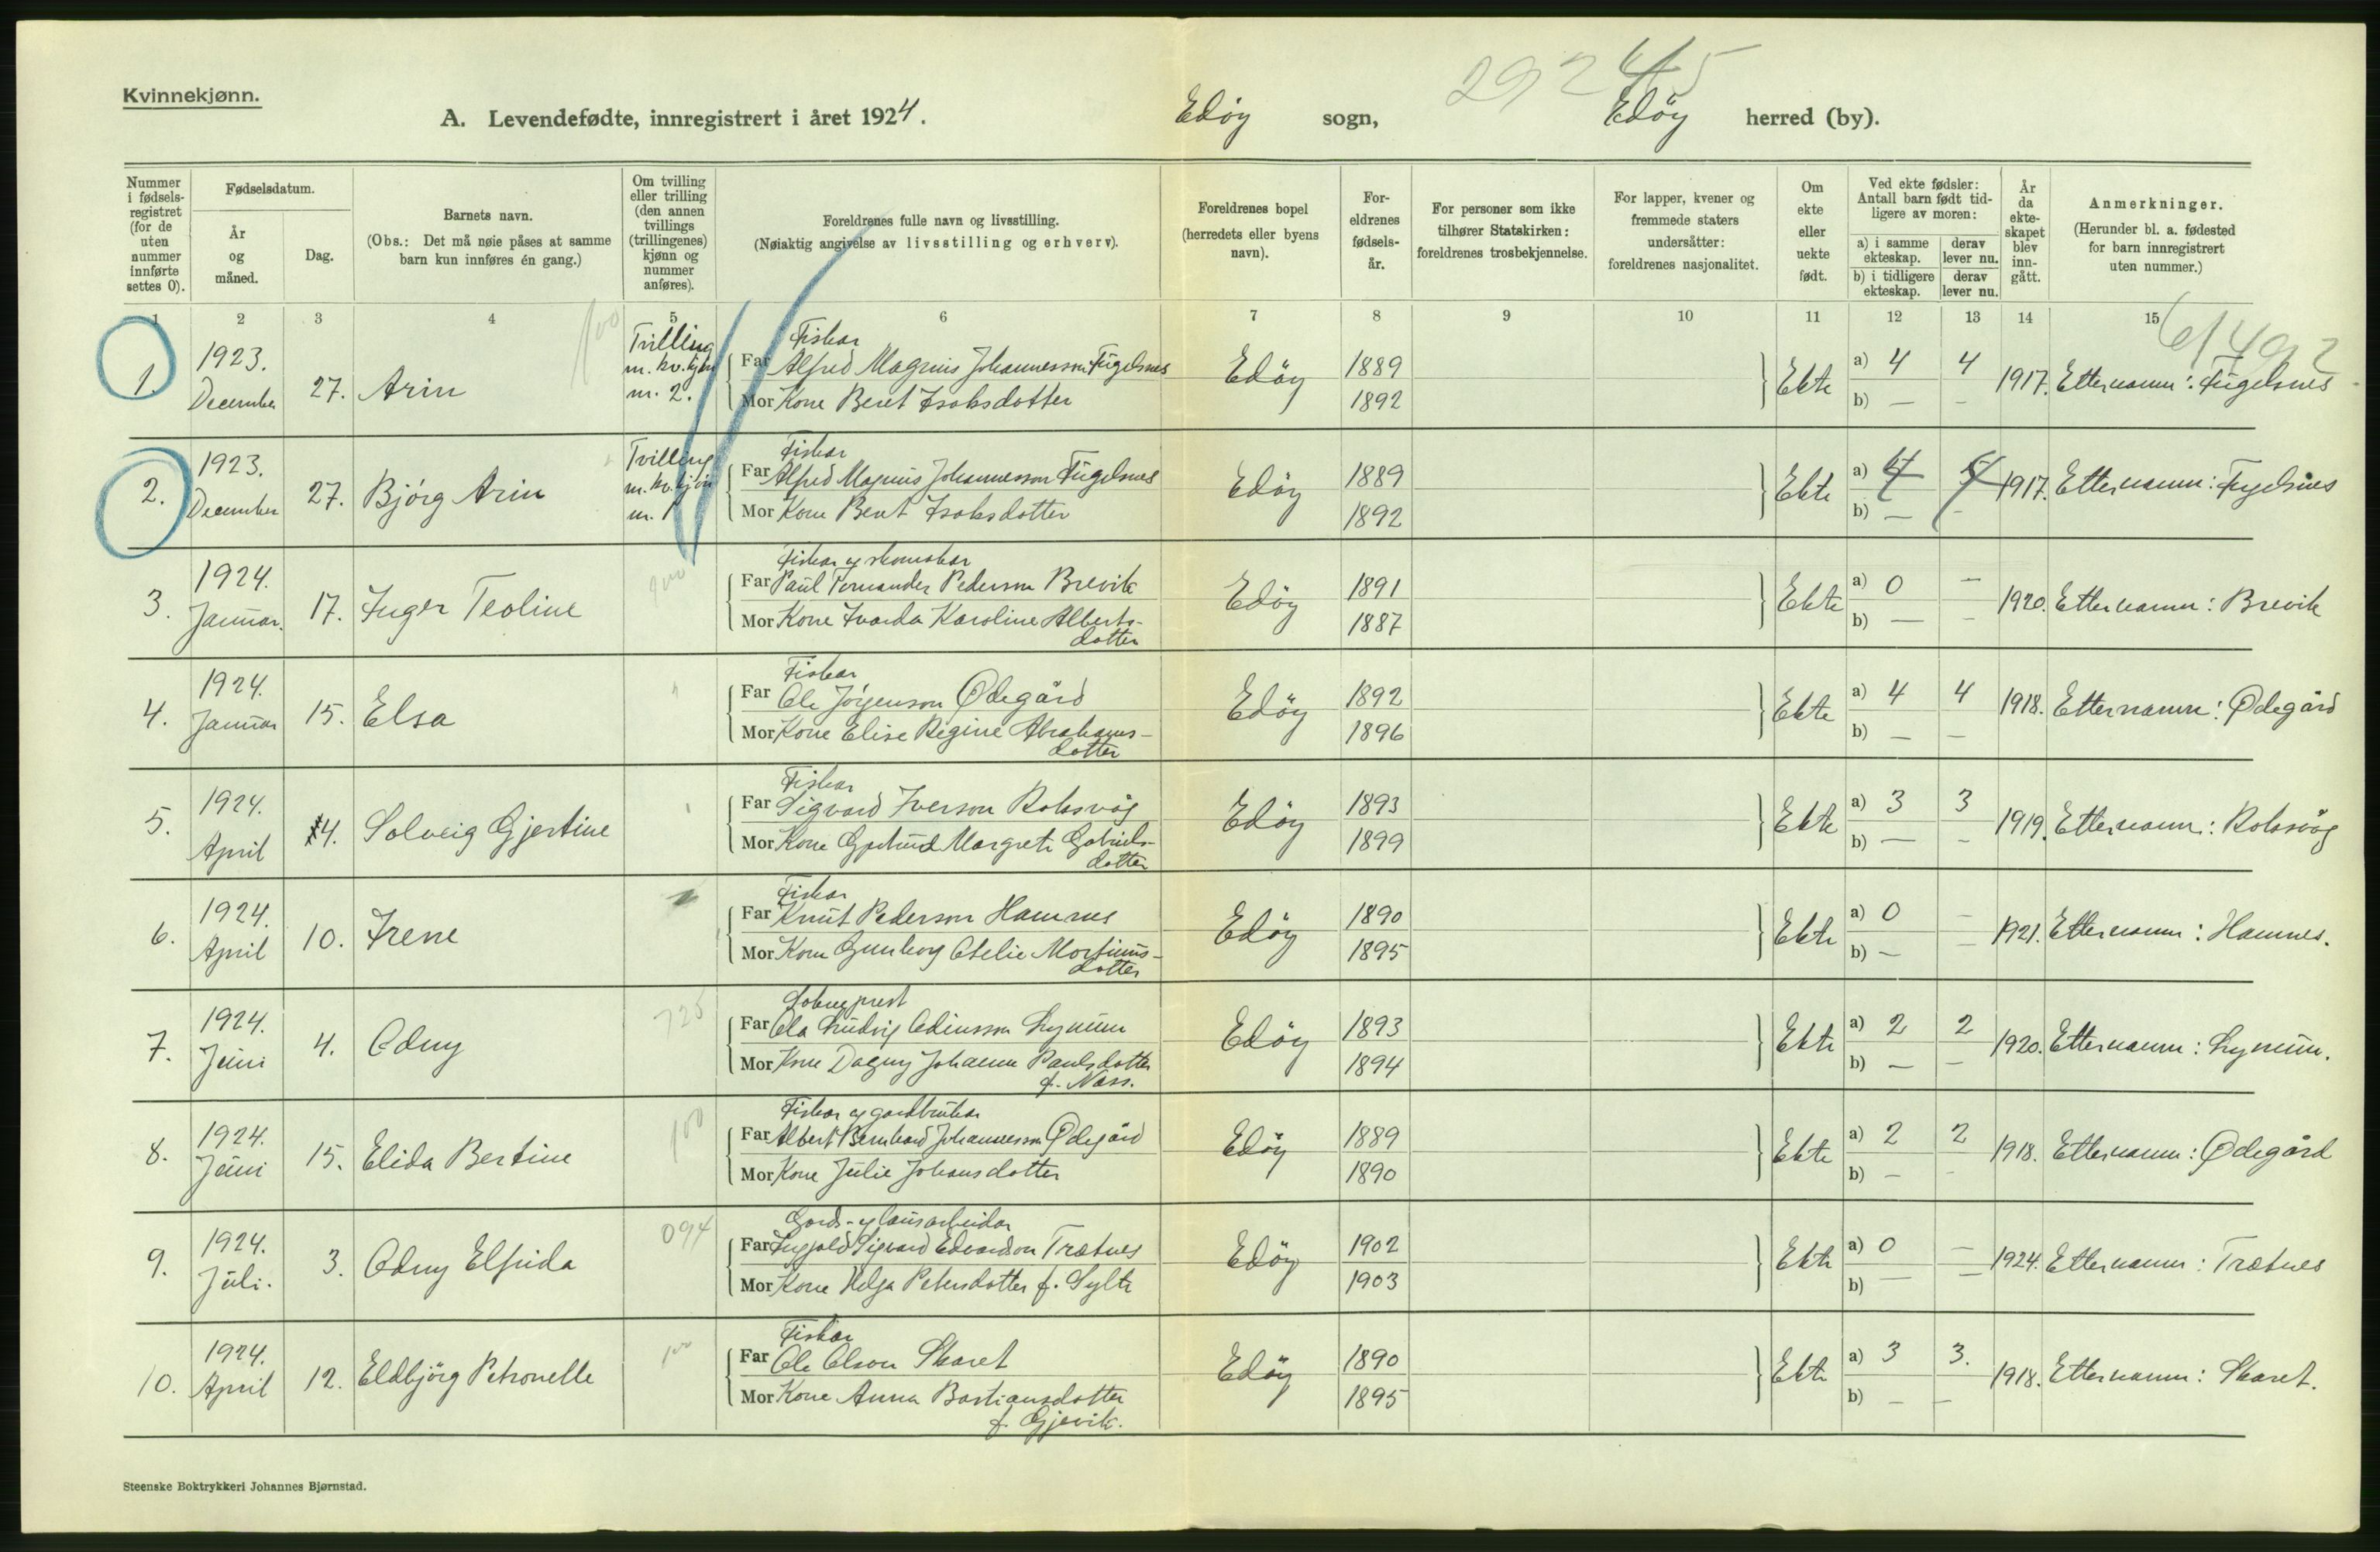 Kvinnekjønn.
A. Levendefødte, innregistrert i året 1924.
Edöy sogn, Edöy herred (by).
29245
Nummer i fødselsregistret (for de uten nummer innførte settes 0).
Fødselsdatum.
År og måned.
Dag.
Barnets navn.
(Obs.: Det må nøie påses at samme barn kun innføres én gang.)
Om tvilling eller trilling (den annen tvillings (trillingenes) kjønn og nummer anføres).
Foreldrenes fulle navn og livsstilling.
(Nøiaktig angivelse av livsstilling og erhverv).
Foreldrenes bopel (herredets eller byens navn).
Foreldrenes fødselsår.
For personer som ikke tilhører Statskirken: foreldrenes trosbekjennelse.
For lapper, kvener og fremmede staters undersåtter: foreldrenes nasjonalitet.
Om ekte eller uekte født.
Ved ekte fødsler: Antall barn født tidligere av moren:
a) i samme ekteskap. derav lever nu.
b) i tidligere ekteskap. derav lever nu.
År da ekteskapet blev inngått.
Anmerkninger.
(Herunder bl. a. fødested for barn innregistrert uten nummer.)
1 2 3 4 5 6 7 8 9 10 11 12 13 14 15
1. 1923. December 27. Arin
Tvilling m. kv. kjön nr. 2.
Fiskar
Far Alfred Magnus Johannesson Fugelsnes
Mor Kone Beret Isaksdotter
Edöy 1889 1892 Ekte a) 4 4 b) — — 1917. Etternamn: Fugelsnes
2. 1923. December 27. Bjørg Arin
Tvilling m. kv. kjön nr. 1
Fiskar
Far Alfred Magnus Johannesson Fugelsnes
Mor Kone Beret Isaksdotter
Edöy 1889 1892 Ekte a) 4 b) — – 1917. Etternamn: Fugelsnes
3. 1924. Januar. 17. Inger Teoline
Fiskar og skomakar
Far Paul Fernander Pederson Brevik
Mor Kone Ivarda Karoline Albertsdotter
Edöy 1891 1887 Ekte a) 0 — b) — – 1920. Etternamn: Brevik
4. 1924. Januar 15. Elsa
Fiskar
Far Ole Jørgenson Ødegård
Mor Kone Elise Regine Abrahamsdotter
Edöy 1892 1896 Ekte a) 4 4 b) — — 1918. Etternamn: Ødegård
5. 1924. April 4. Solveig Gjertine
Fiskar
Far Sigvard Iverson Roksvåg
Mor Kone Gjertrud Margrete Gabrielsdotter
Edöy 1893 1899 Ekte a) 3 3 b) — – 1919. Etternamn: Roksvåg
6. 1924. April 10. Irene
Fiskar
Far Knut Pederson Hamnes
Mor Kone Gunborg Otelie Martinusdotter
Edöy 1890 1895 Ekte a) 0 — b) — — 1921. Etternamn: Hamnes.
7. 1924. Juni 4. Odny
725
Sokneprest
Far Ola Ludvig Odinsson Lynum
Mor Kone Dagny Johanne Paulsdotter f. Næss.
Edöy 1893 1894 Ekte a) 2 2 b) — — 1920. Etternamn: Lynum.
8. 1924. Juni 15. Elida Bertine
100
Fiskar og gardbrukar
Far Albert Bernhard Johannesson Ødegård
Mor Kone Julie Johansdotter
Edöy 1889 1890 Ekte a) 2 2 b) — - 1918. Etternamn: Ødegård
9. 1924. Juli. 3. Odny Elfrida
094
Gards- og lausarbeidar
Far Ingjald Sigvard Edvardson Trætnes
Mor Kone Helga Petersdotter f. Sylte
Edöy 1902 1903 Ekte a) 0 — b) — — 1924. Etternamn: Trætnes
10. 1924. April 12. Eldbjörg Petronelle
Fiskar
Far Ole Olson Skaret
Mor Kone Anna Bastiansdotter f. Gjevik.
Edöy 1890 1895 Ekte a) 3 3. b) — — 1918. Etternamn: Skaret.
Steenske Boktrykkeri Johannes Bjørnstad.